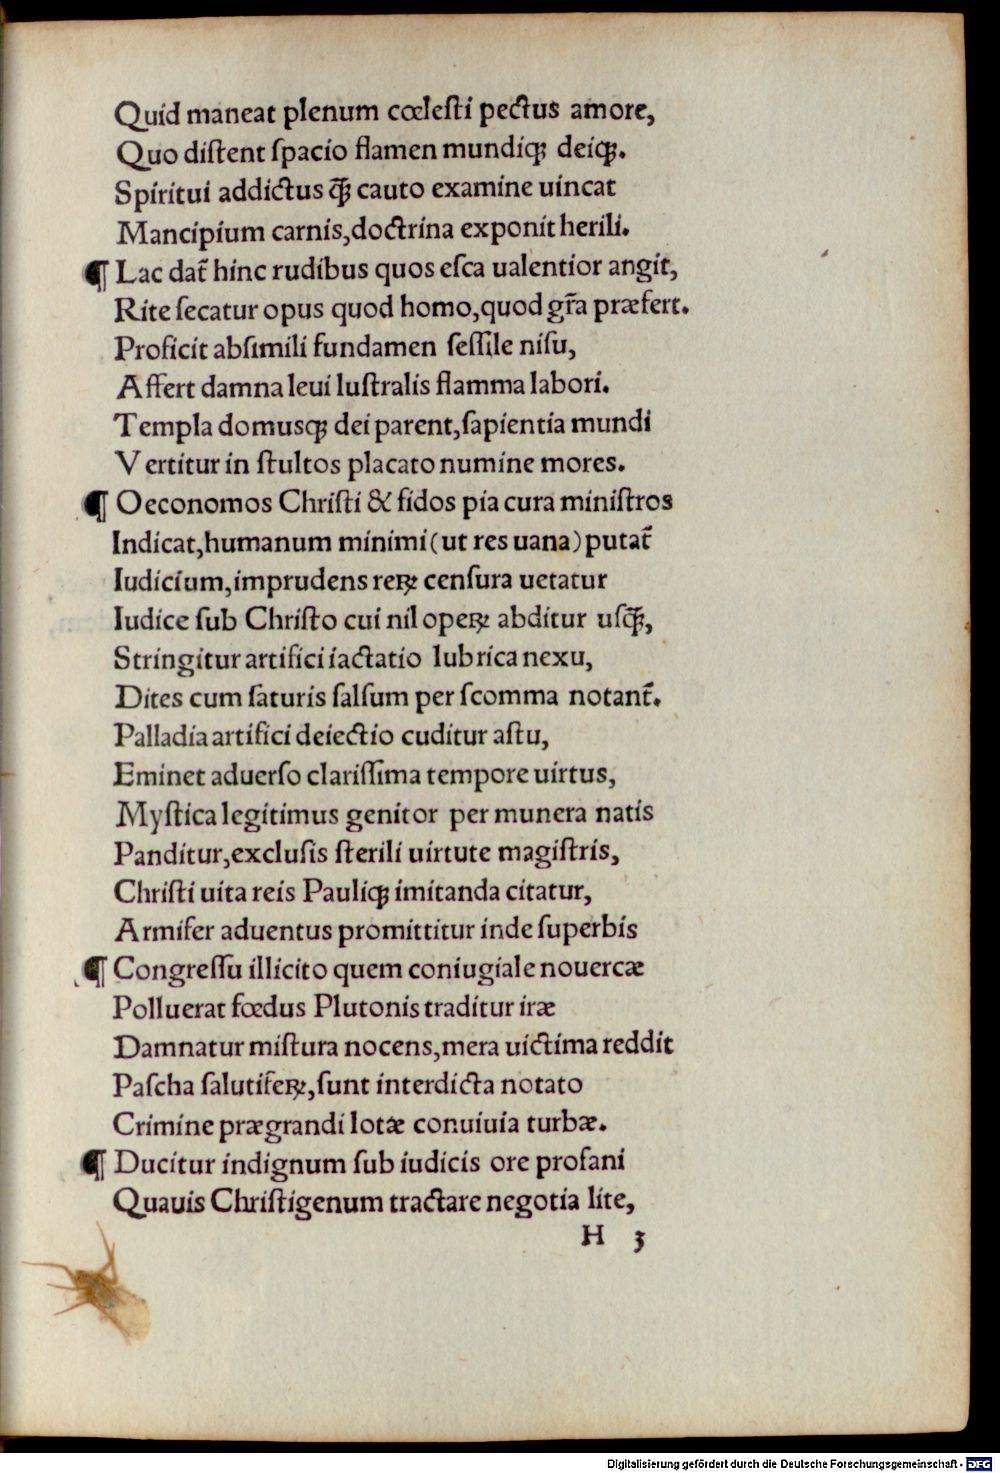 Quid maneat plenum cœleſti pectus amore,
Quo diſtent ſpacio flamen mundiqꝫ deiqꝫ.
Spiritui addictus q̄ꝫ cauto examine uincat
Mancipium carnis,doctrina exponit herili.
¶ Lac dat᷑ hinc rudibus quos eſca ualentior angit,
Rite ſecatur opus quod homo,quod gr̄a præfert.
Proficit abſimili fundamen ſeſſile niſu,
Affert damna leui luſtralis flamma labori.
Templa domusqꝫ dei parent,ſapientia mundi
Vertitur in ſtultos placato numine mores.
¶ Oeconomos Chriſti & fidos pia cura miniſtros
Indicat,humanum minimi(ut res uana)putat᷑
Iudicium,imprudens reꝝ cenſura uetatur
Iudice ſub Chriſto cui nil opeꝝ abditur uſq̄ꝫ,
Stringitur artifici iactatio lubrica nexu,
Dites cum ſaturis ſalſum per ſcomma notant᷑.
Palladia artifici deiectio cuditur aſtu,
Eminet aduerſo clariſſima tempore uirtus,
Myſtica legitimus genitor per munera natis
Panditur,excluſis ſterili uirtute magiſtris,
Chriſti uita reis Pauliqꝫ imitanda citatur,
Armifer aduentus promittitur inde ſuperbis
¶ Congreſſu illicito quem coniugiale nouercæ
Polluerat fœdus Plutonis traditur iræ
Damnatur miſtura nocens,mera uictima reddit
Paſcha ſalutifeꝝ,ſunt interdicta notato
Crimine prægrandi lotæ conuiuia turbæ.
¶ Ducitur indignum ſub iudicis ore profani
Quauis Chriſtigenum tractare negotia lite,
H 3
Digitalisierung gefördert durch die Deutsche Forschungsgemeinschaft - DFG